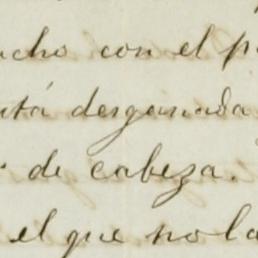 ucho con el p
stá desganada
de cabeza.
el que no la